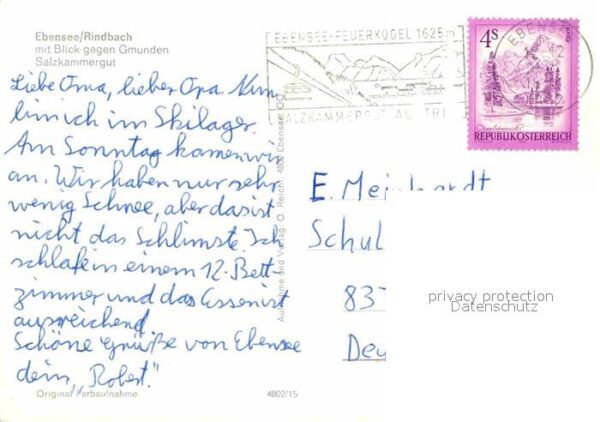 Ebensee/Rindbach
mit Blick gegen Gmunden
Salzkammergut
Liebe Oma, lieber Opa. Nun
bin ich im Skilager.
Am Sonntag kamen wir
an. Wir haben nur sehr
wenig Schnee, aber das ist
nicht das Schlimmste. Ich
schlafe in einem 12-Bett-
zimmer und das Essen ist
ausreichend.
Schöne Grüße von Ebensee
dein „Robert."
Original Farbaufnahme
4802/15
Aufnahme und Verlag: O. 4802 Ebensee, OÖ.
EBENSEE-FEUERKOGEL 1625m
SALZKAMMERGUT-AUSTRIA
EBENSEE
4S
REPUBLIK ÖSTERREICH
E. Meinhardt
Schul
837
privacy protection
Datenschutz